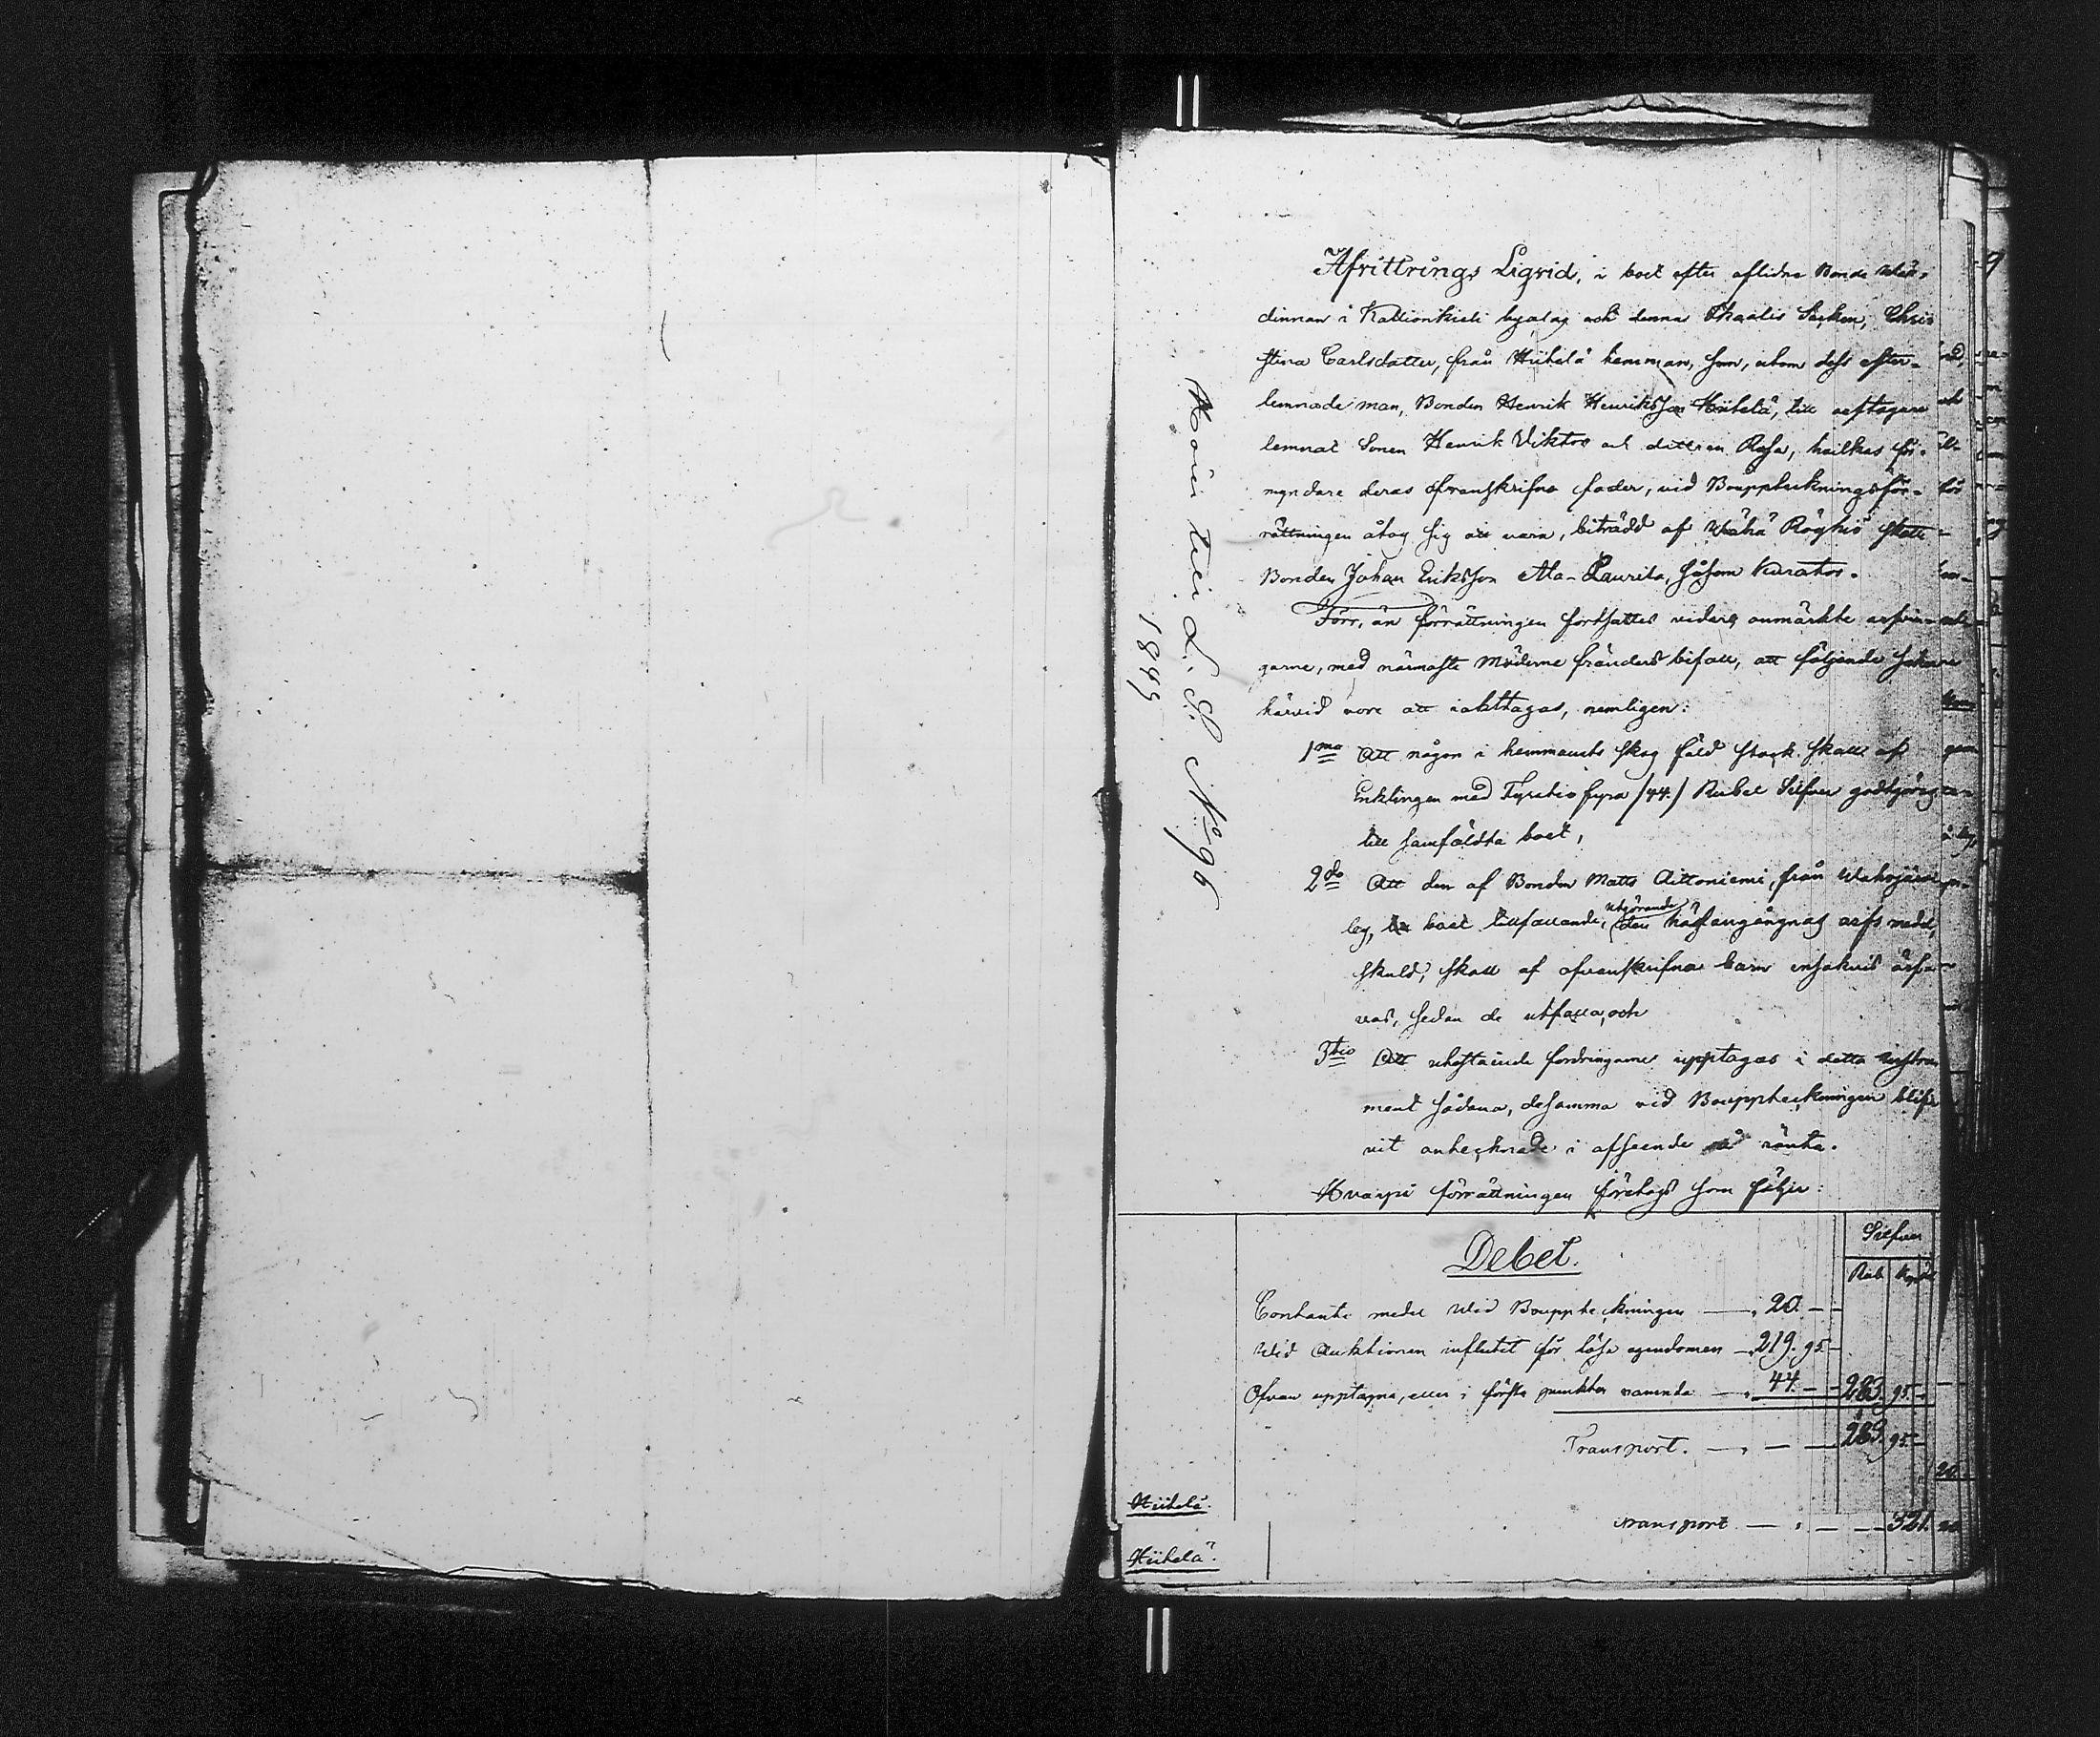 Afvittrings Liqvid, i boet efter aflidne Bonde Wär-
dinnan i Kallionkieli byalag och denna Thaalis Socken, Chris
tina Carlsdotter, från Hiitelä hemman, som, utom dess efter-
lemnade man, Bonden Henrik Henriksson Hiitelä, till arftagare
lemnat Sonen Henrik Viktor och dottren Rosa, hvilkas för-
myndare deras ofvanskrifne fader, vid Bouppteckningsför-
rättningen åtog sig att vara, biträdd af Wähä Röyhiö Skatte-
Bonden Johan Eriksson Ala-Laurila, såsom Kurator.
Förr, än förrättningen fortsattes vidare anmärkte arfvin-
garne, med närmaste Möderne fränders bifall, att följande saker
härvid vore att iakttagas, nemligen:
1mo Att någon i hemmanets skog fäld stock skall af
Enklingen med Fyratio fyra /44./ Rubel Silfver godtgöras
till samfäldta boet,
2do Att den af Bonden Matts Aittoniemi, från Wahojärvi
by, boet tillfallande, utgörande arfs medel,
skuld, skall af ofvanskrifne barn enskildt ärf-
vas, sedan de utfalla, och
3tio Att utestående fordringarne upptages i detta instru
ment sådana, desamma vid Bouppteckningen blif
vit antecknade i afseende å ränta.
Hvarpå förrättningen företogs som följer:
Debet.
Silfver
Rub Kopek
Contante medel Wid Bouppteckningen — 20. —
Wid Auktionen influtit för lösa egendomen — 219. 95 —
Ofvan upptagna, eller i första punkten nämnda — 44. — 283. 95. —
Transport. — — — 283. 95. —
Hiitelä.
Transport — — — 321.
Hiitelä.
1849
L. S. N:o 96